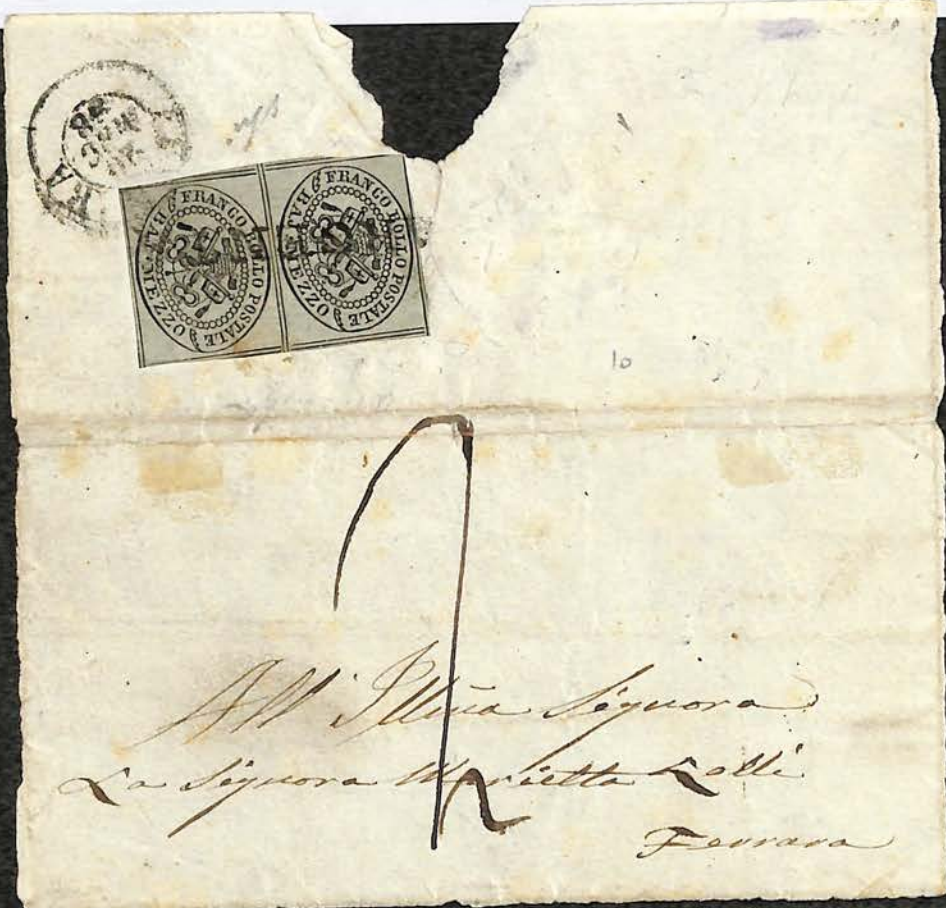 FRANCO BOLLO POSTALE
MEZZO BAJ
FRANCO BOLLO POSTALE
MEZZO BAJ
10
All' Illma Signora
La Signora Marietta Lolli
Ferrara